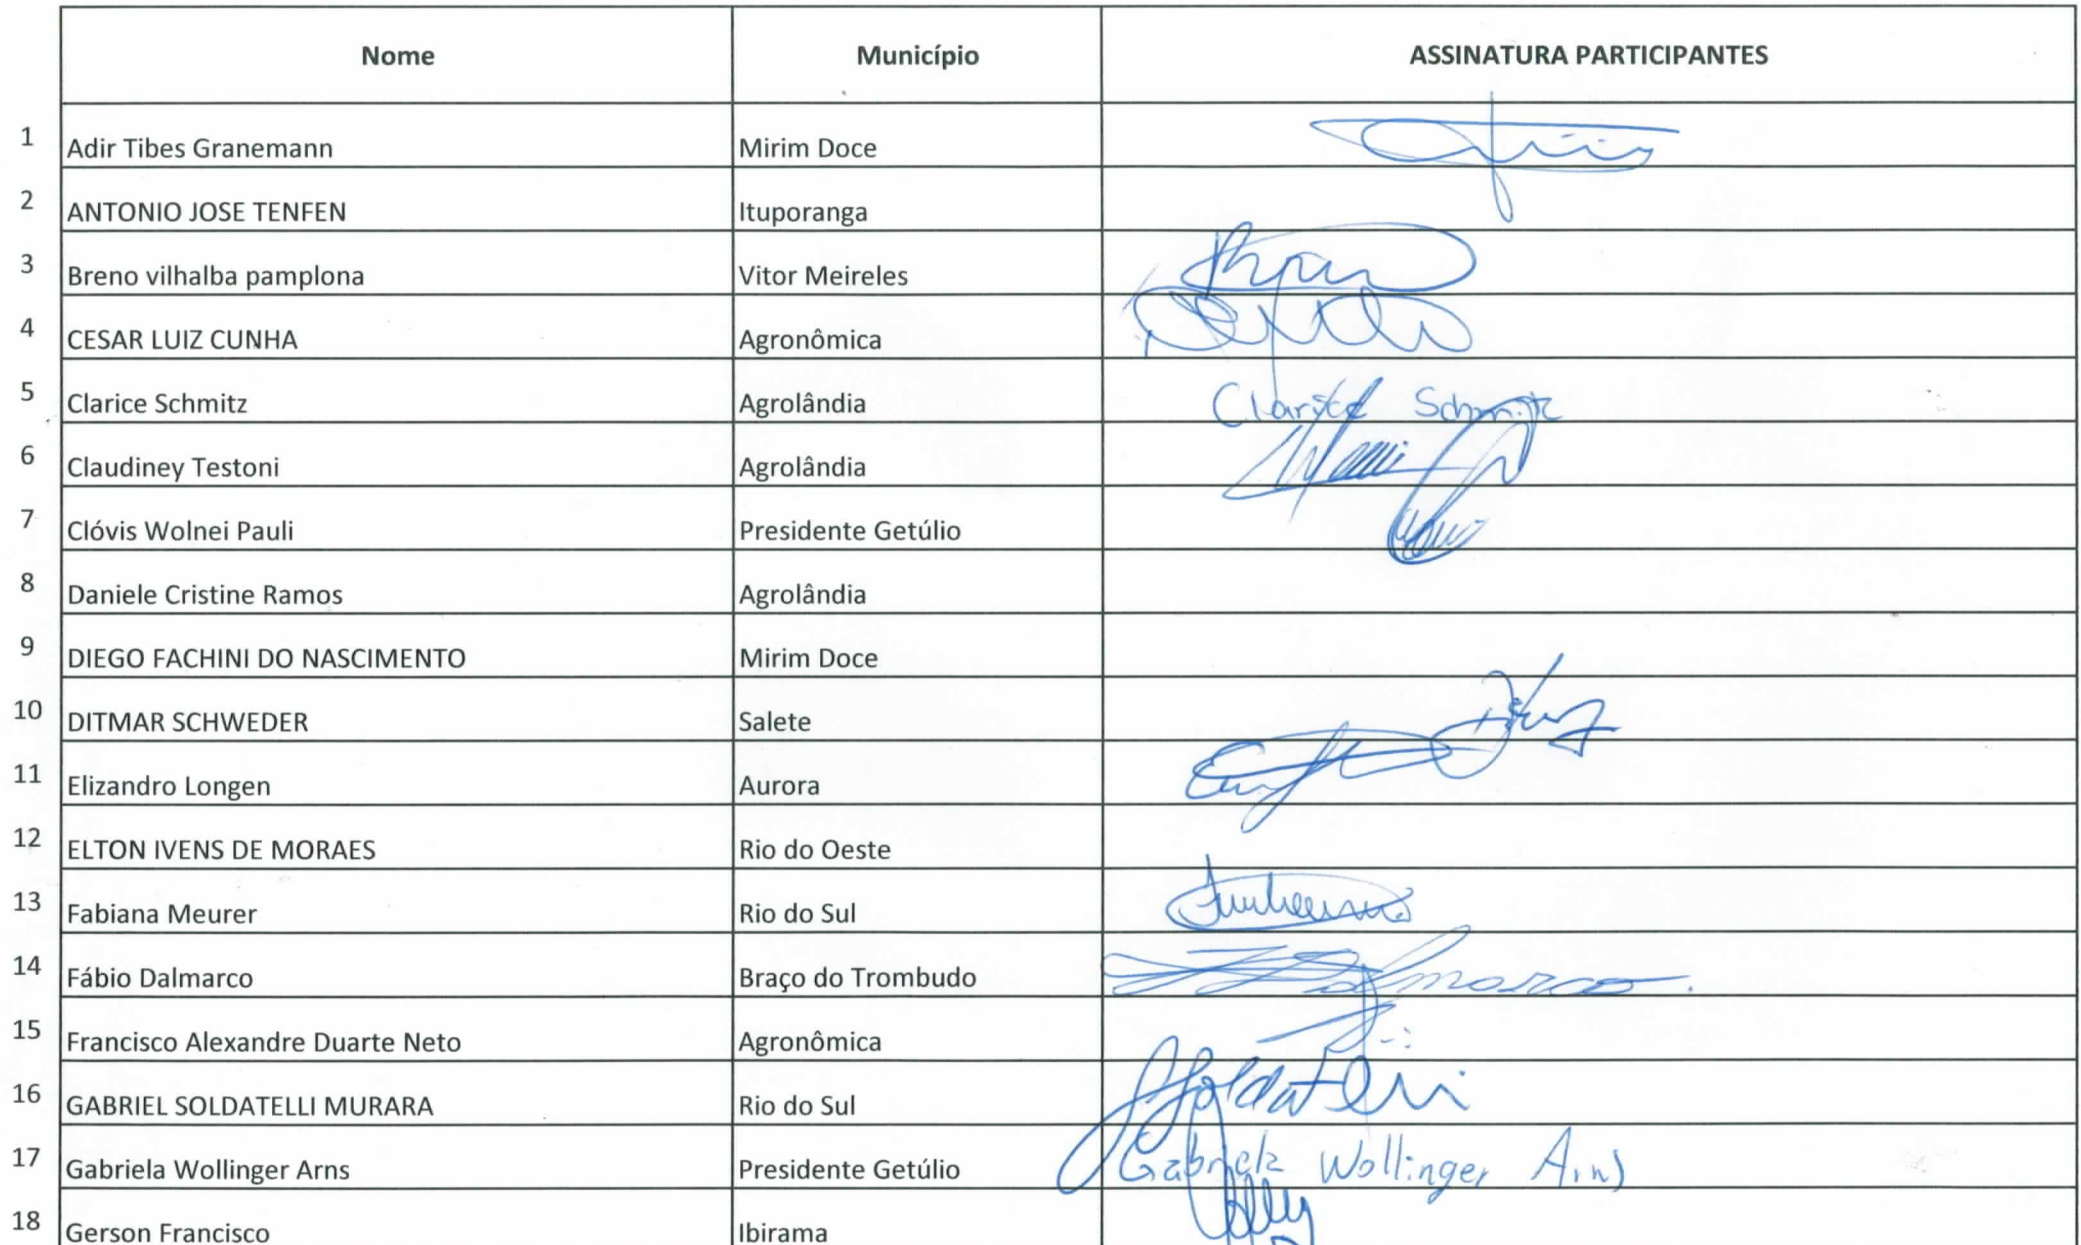 Nome Município ASSINATURA PARTICIPANTES
1 Adir Tibes Granemann Mirim Doce
2 ANTONIO JOSE TENFEN Ituporanga
3 Breno vilhalba pamplona Vitor Meireles
4 CESAR LUIZ CUNHA Agronômica
5 Clarice Schmitz Agrolândia Clarice Schmitz
6 Claudiney Testoni Agrolândia
7 Clóvis Wolnei Pauli Presidente Getúlio
8 Daniele Cristine Ramos Agrolândia
9 DIEGO FACHINI DO NASCIMENTO Mirim Doce
10 DITMAR SCHWEDER Salete
11 Elizandro Longen Aurora
12 ELTON IVENS DE MORAES Rio do Oeste
13 Fabiana Meurer Rio do Sul
14 Fábio Dalmarco Braço do Trombudo Dalmarco.
15 Francisco Alexandre Duarte Neto Agronômica
16 GABRIEL SOLDATELLI MURARA Rio do Sul
17 Gabriela Wollinger Arns Presidente Getúlio Gabriela Wollinger Arns
18 Gerson Francisco Ibirama